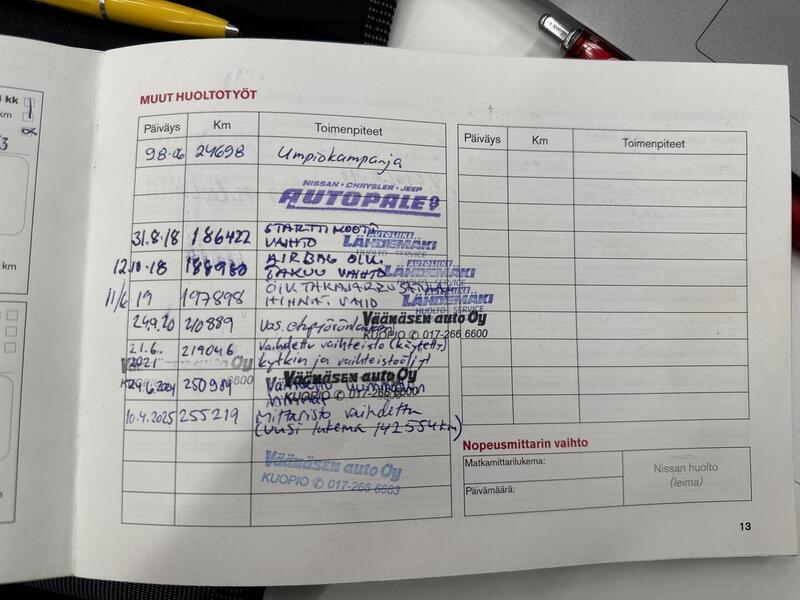 MUUT HUOLTOTYÖT
Päiväys Km Toimenpiteet
24698 Umpiokampanja
NISSAN • CHRYSLER • JEEP
AUTOPALE
31.8.18 186422 STARTTIMOOTT.
VAIHTO
AUTOLIIKE
LÄHDEMÄKI
HUOLTO - SERVICE
12.10.18 188980 AIRBAG OIK.
TAKUU VAIHTO
AUTOLIIKE
LÄHDEMÄKI
11/6.19 197898 OIK. TAKAJARRU
HINNAT. VAIHD
AUTOLIIKE
LÄHDEMÄKI
HUOLTO - SERVICE
24.9.20 210889 vas.
Väänäsen auto Oy
KUOPIO 017-266 6600
21.6. 2021 219046 vaihdettu vaihteisto (käytetty)
kytkin ja vaihteistoöljyt
auto Oy
6600
24.6.2024
Väänäsen auto Oy
KUOPIO 017-266 6600
10.4.2025 255219 Mittaristo vaihdettu
(uusi lukema 142554km)
Väänäsen auto Oy
KUOPIO 017-266 6663
Päiväys Km Toimenpiteet
Nopeusmittarin vaihto
Matkamittarilukema:
Päivämäärä:
Nissan huolto
(leima)
13
kk
km
km